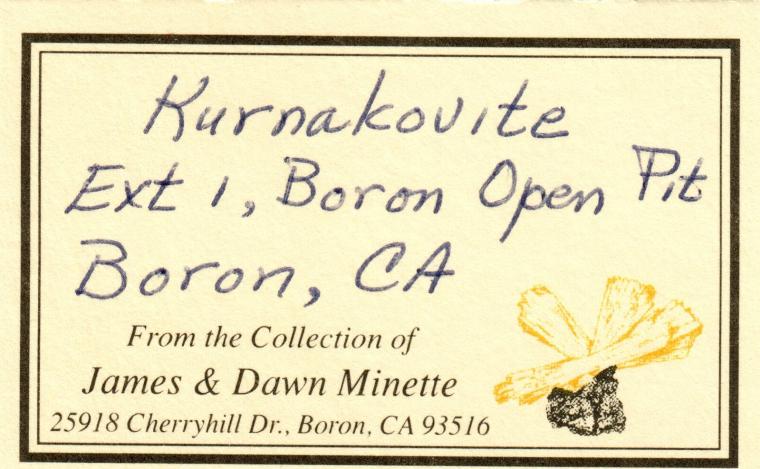 Kurnakovite
Ext 1, Boron Open Pit
Boron, CA
From the Collection of
James & Dawn Minette
25918 Cherryhill Dr., Boron, CA 93516